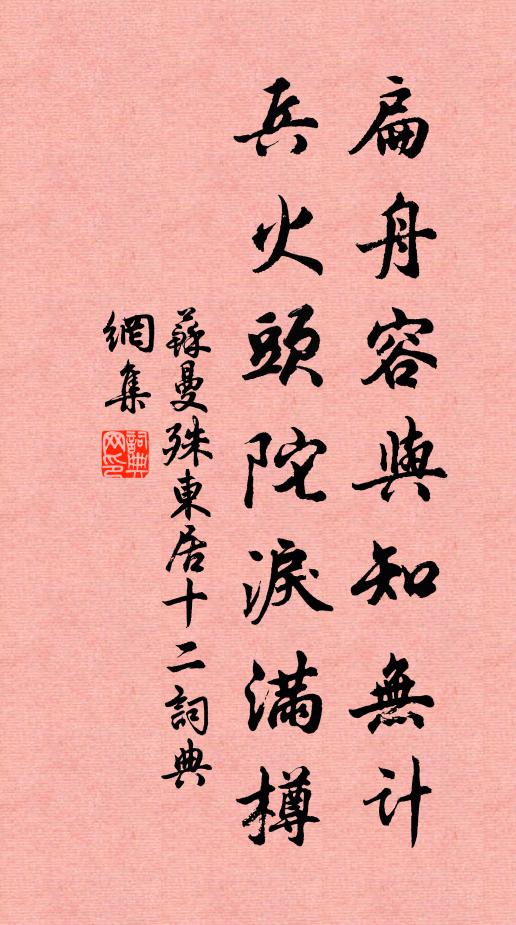 扁舟容與知無計
兵火頭陀淚滿樽
蘇曼殊東居十二詞典
網集
詞典网印